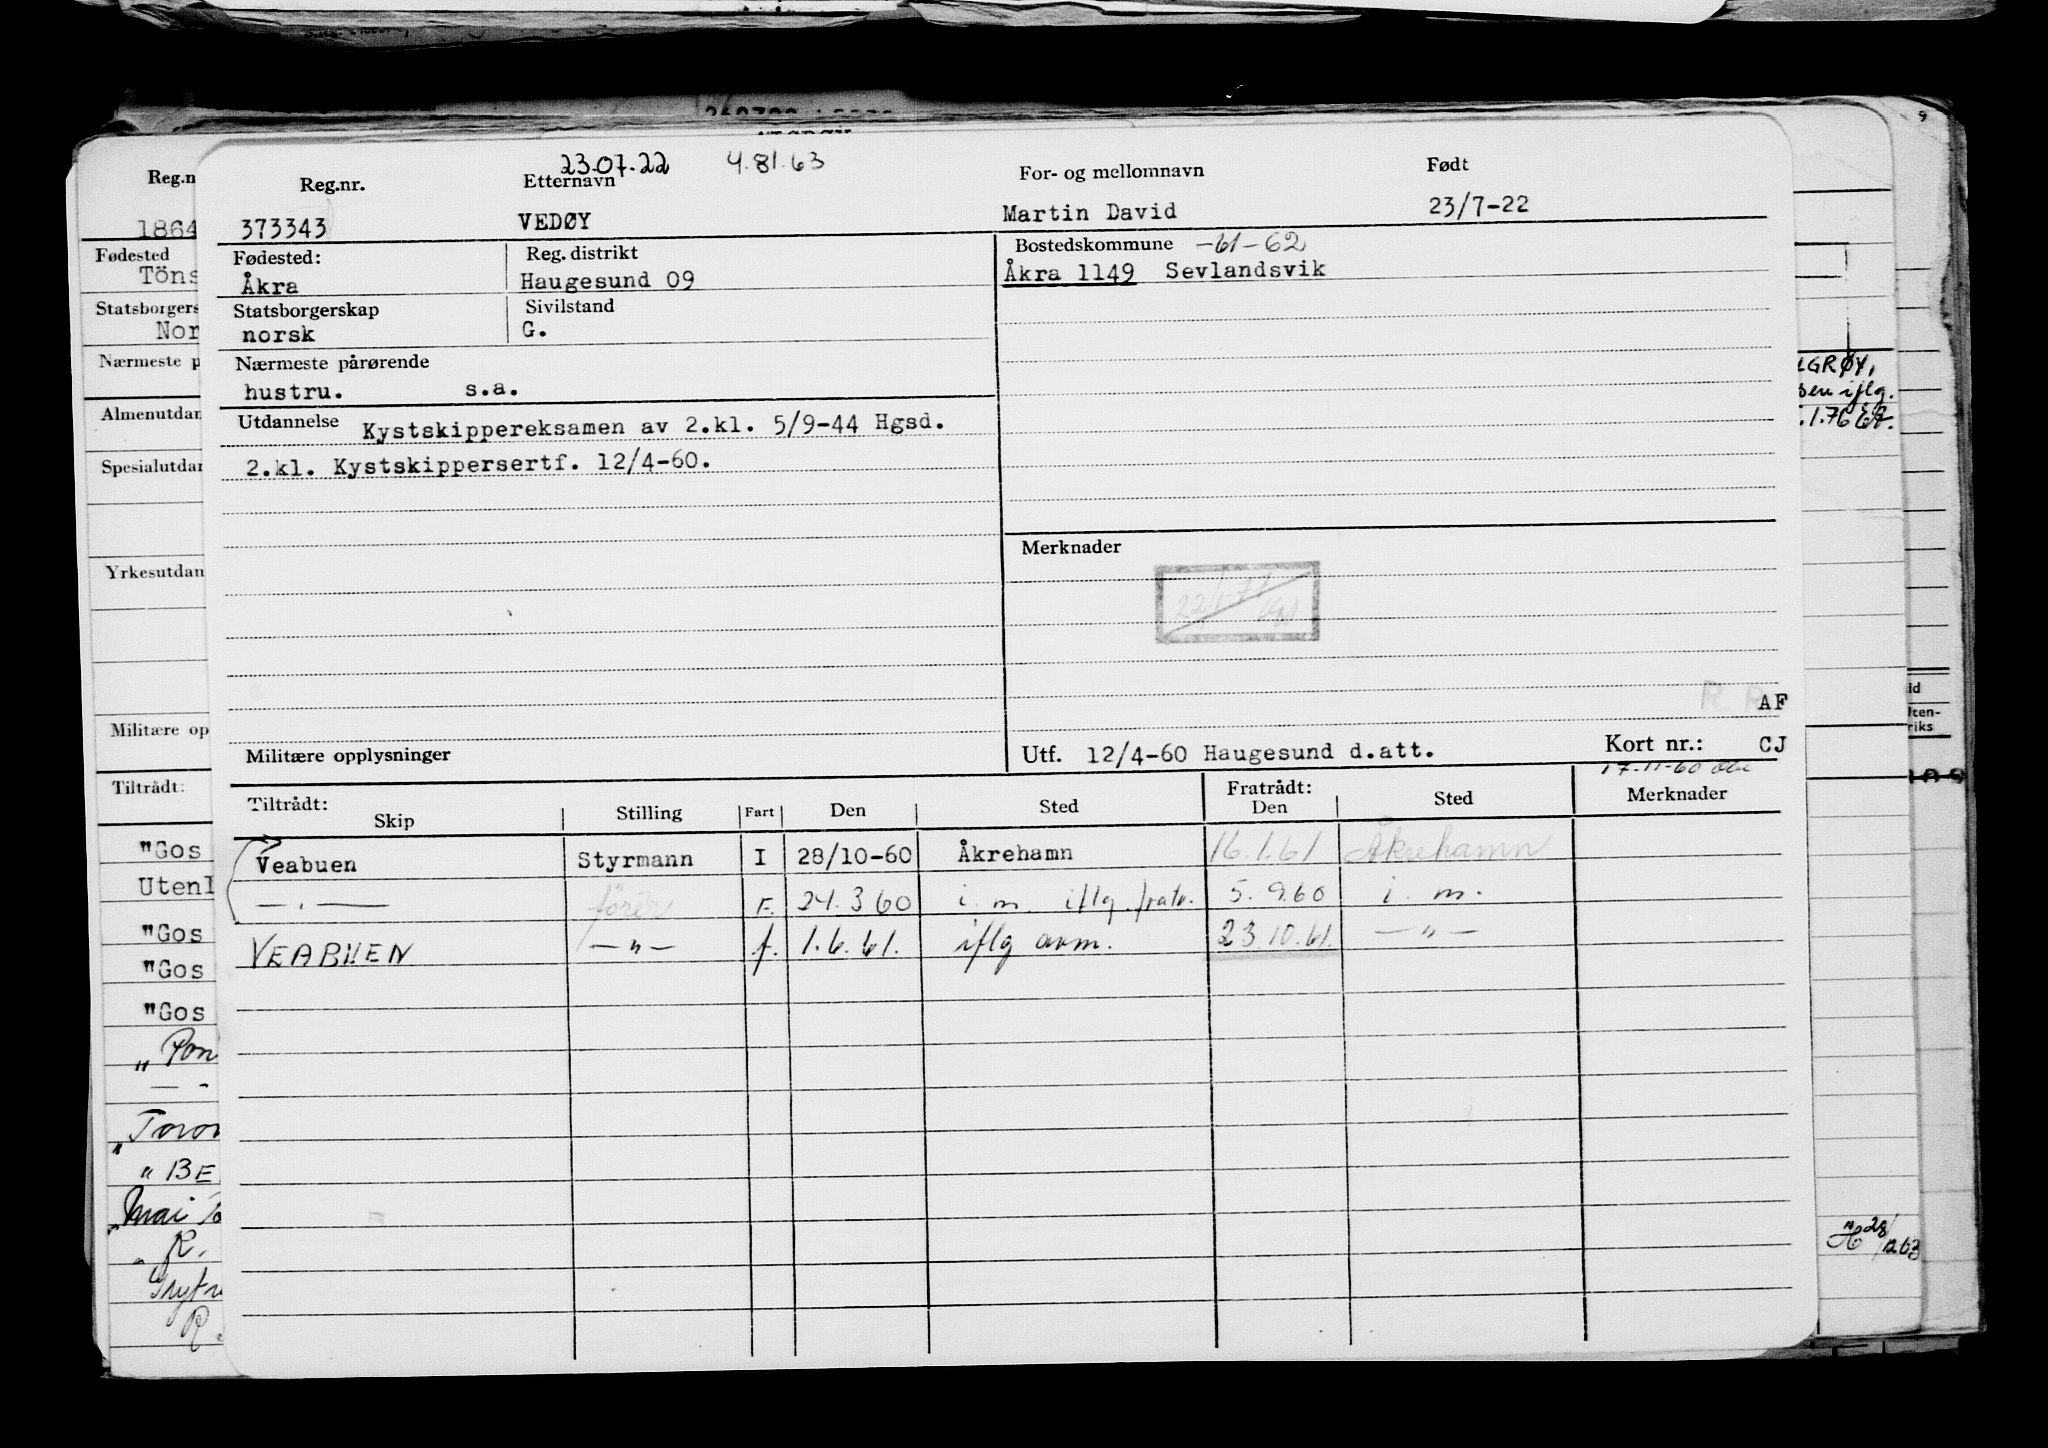 23.07.22 4.81.63
Reg.nr. Etternavn For- og mellomnavn Født
373343 VEDØY Martin David 23/7-22
Fødested: Reg. distrikt Bostedskommune -61-62
Åkra Haugesund 09 Åkra 1149 Sevlandsvik
Statsborgerskap Sivilstand
norsk G.
Nærmeste pårørende
hustru. s.a.
Utdannelse Kystskippereksamen av 2.kl. 5/9-44 Hgsd.
2.kl. Kystskippersertf. 12/4-60.
Merknader
R. R AF
Militære opplysninger Utf. 12/4-60 Haugesund d.att. Kort nr.: CJ
17.11-60
Tiltrådt: Fratrådt:
Skip Stilling Fart Den Sted Den Sted Merknader
Veabuen Styrmann I 28/10-60 Åkrehamn 16.1.61 Åkrehamn
— . — fører F. 24.3 60 i. m. iflg. fratr. 5. 9.60 i. m.
VEABUEN — " — f. 1.6.61. iflg avm. 23.10.61. — " —
Reg.n
1864
Fødested
Töns
Statsborgers
Nor
Nærmeste p
Almenutdan
Spesialutdan
Yrkesutdan
Militære op
Tiltrådt:
"Gos
Utenl
"Gos
"Gos
"Gos
"BE
R.
R
LGRØY,
sen iflg.
9